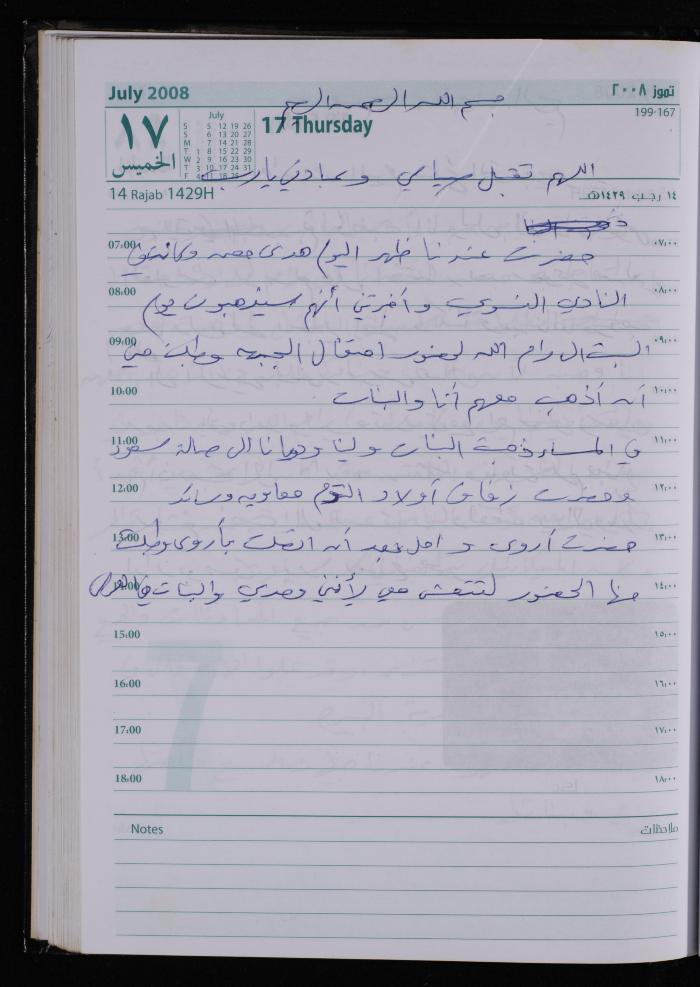 July 2008
تموز ٢٠٠٨
بسم الله الرحمن الرحيم
199-167
١٧
الخميس
July
S 5 12 19 26
S 6 13 20 27
M 7 14 21 28
T 1 8 15 22 29
W 2 9 16 23 30
T 3 10 17 24 31
F 4 11 18 25
17 Thursday
اللهم تقبل صيامي وعبادتي يا رب
14 Rajab 1429H
١٤ رجب ١٤٢٩هـ
07:00 حضرت عندنا ظهر اليوم هدى وكانت في ٠٧:٠٠
08:00 النادي النسوي وأخبرتني أنهم سيذهبون يوم ٠٨:٠٠
09:00 السبت الى رام الله لحضور احتفال الجبهة وطلبت مني ٠٩:٠٠
10:00 أن أذهب معهم أنا والبنات ١٠:٠٠
11:00 في المساء ذهبت البنات ولينا الى صالة سعود ١١:٠٠
12:00 وحضرت زفاف أولاد التوم معاويه ١٢:٠٠
13:00 حضرت أروى وامل بعد أن اتصلت بأروى وطلبت ١٣:٠٠
14:00 منها الحضور لتتعشى معي لأنني وحدي والبنات في العرس ١٤:٠٠
15:00 ١٥:٠٠
16:00 ١٦:٠٠
17:00 ١٧:٠٠
18:00 ١٨:٠٠
7
Notes
ملاحظات